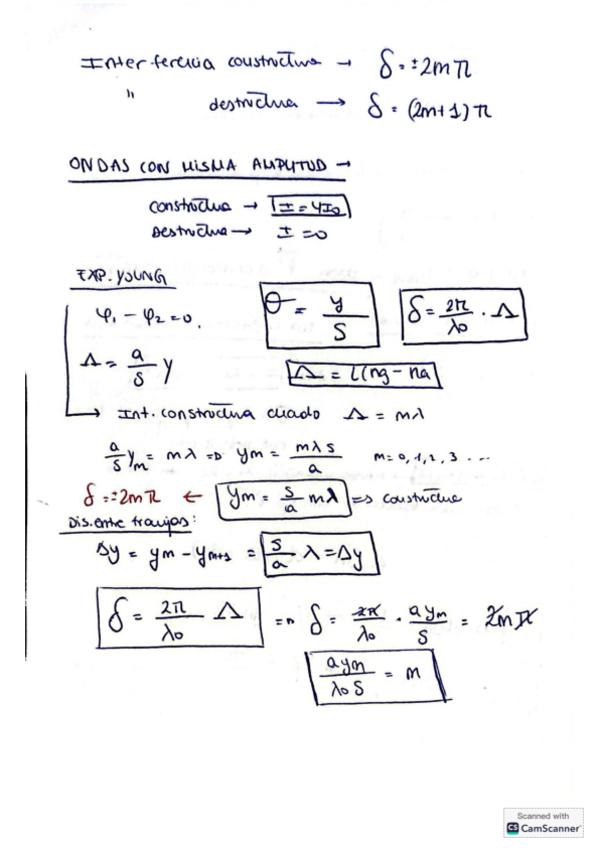 Interferencia constructiva → δ = ±2mπ
" destructiva → δ = (2m+1)π
ONDAS CON MISMA AMPLITUD →
constructiva → I = 4I₀
Destructiva → I = 0
EXP. YOUNG
φ₁ - φ₂ = 0.
θ = y/S
δ = 2π/λ₀ · Λ
Λ = a/S y
Λ = l(ng - na
→ Int. constructiva cuando Λ = mλ
a/S yₘ = mλ ⇒ yₘ = mλS/a m = 0, 1, 2, 3 ...
δ = ±2mπ ← yₘ = S/a mλ ⇒ constructiva
Dis. entre franjas:
Δy = yₘ - yₘ₊₁ = S/a λ = Δy
δ = 2π/λ₀ Λ ⇒ δ = 2π/λ₀ · ayₘ/S = 2mπ
ayₘ/λ₀S = m
Scanned with
CS CamScanner